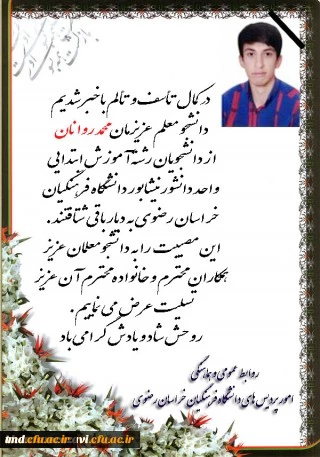 در کمال تاسف و تالم با خبر شدیم
دانشجو معلم عزیزمان محمد روانان
از دانشجویان رشته آموزش ابتدایی
واحد دانشور نیشابور دانشگاه فرهنگیان
خراسان رضوی به دیار باقی شتافتند.
این مصیبت را به دانشجو معلمان عزیز
همکاران محترم و خانواده محترم آن عزیز
تسلیت عرض می نماییم.
روحش شاد و یادش گرامی باد
روابط عمومی و هماهنگی
امور پردیس های دانشگاه فرهنگیان خراسان رضوی